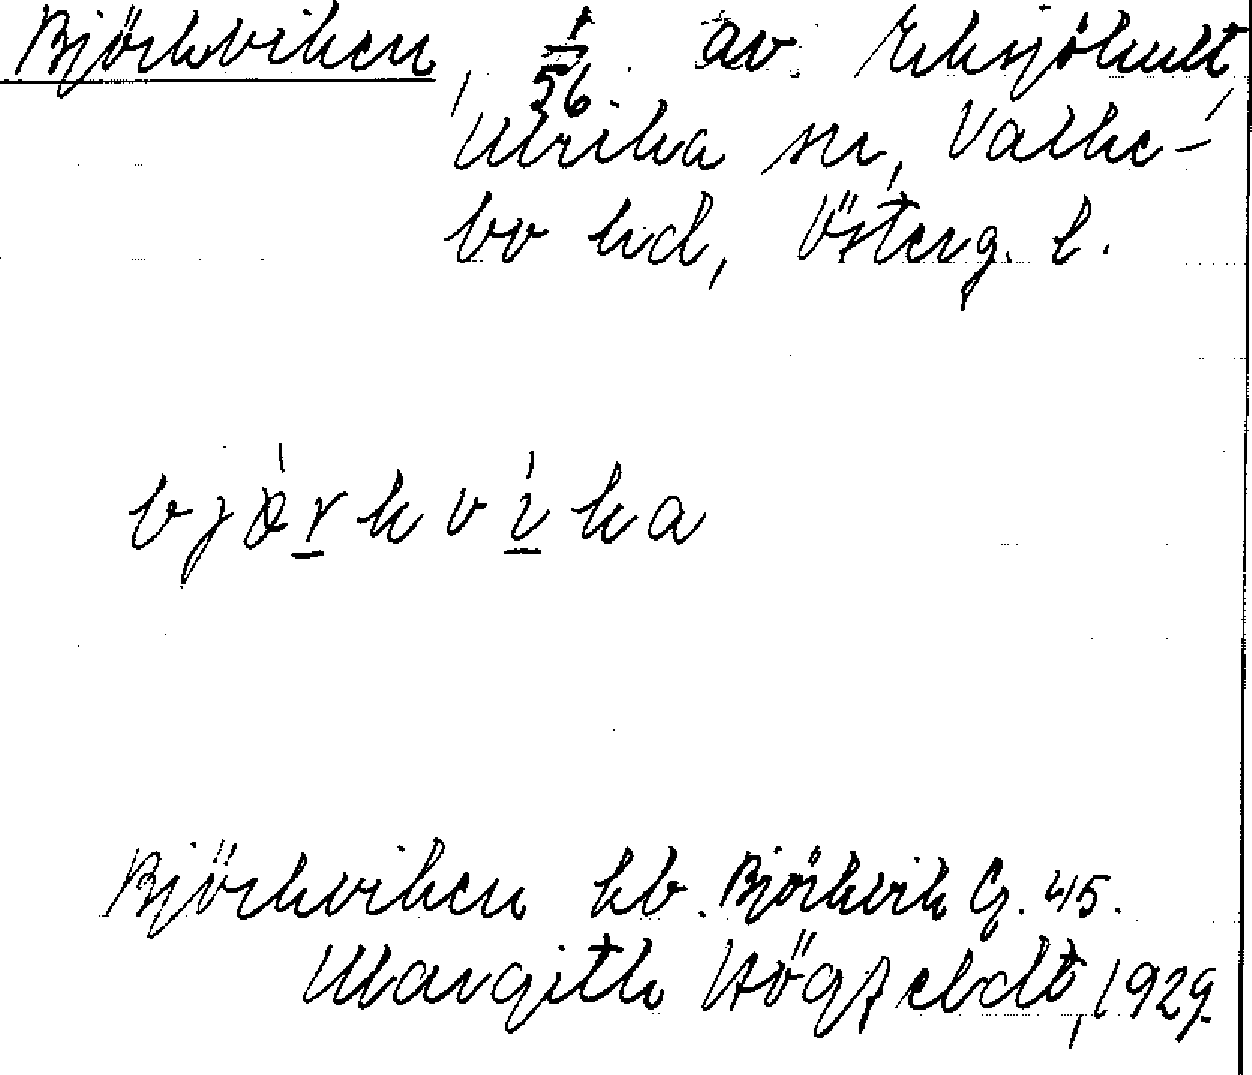 Björkviken, 1/56 av Eksjöhult,
Ulrika sn, Valke-
bo hd, Österg. l.
bjö̀rkvìka
Björkviken kb. Björkvik G. 45.
Margith Högfeldt, 1929.